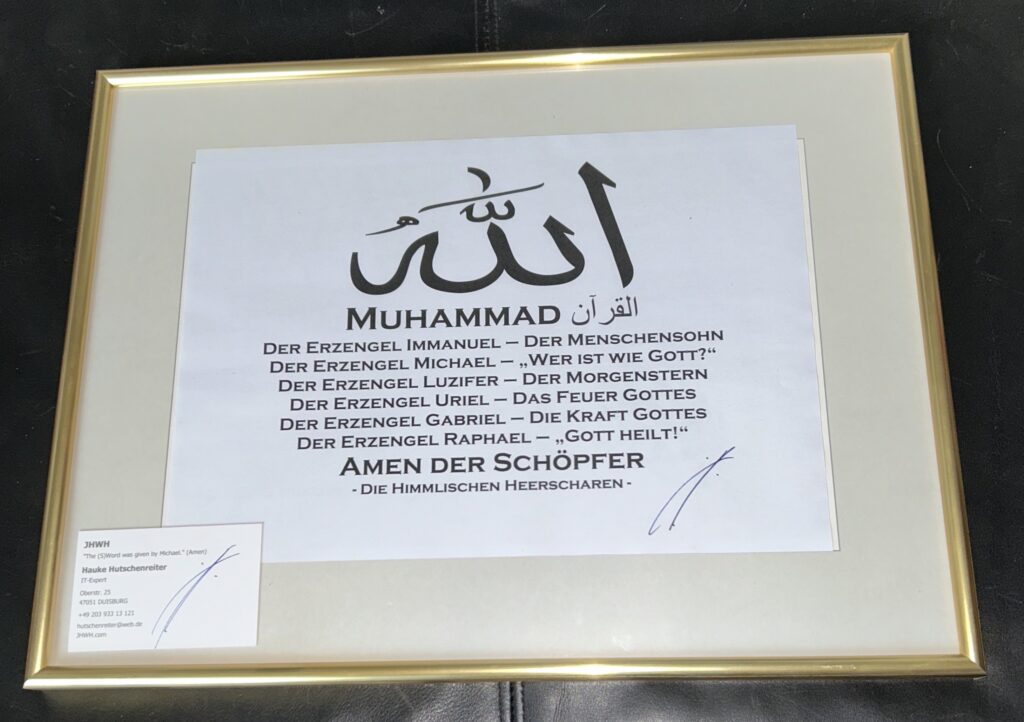 الله
MUHAMMAD القرآن
DER ERZENGEL IMMANUEL – DER MENSCHENSOHN
DER ERZENGEL MICHAEL – „WER IST WIE GOTT?“
DER ERZENGEL LUZIFER – DER MORGENSTERN
DER ERZENGEL URIEL – DAS FEUER GOTTES
DER ERZENGEL GABRIEL – DIE KRAFT GOTTES
DER ERZENGEL RAPHAEL – „GOTT HEILT!“
AMEN DER SCHÖPFER
- DIE HIMMLISCHEN HEERSCHAREN -
JHWH
"The (S)Word was given by Michael." (Amen)
Hauke Hutschenreiter
IT-Expert
Oberstr. 25
47051 DUISBURG
+49 203 933 13 121
hutschenreiter@web.de
JHWH.com